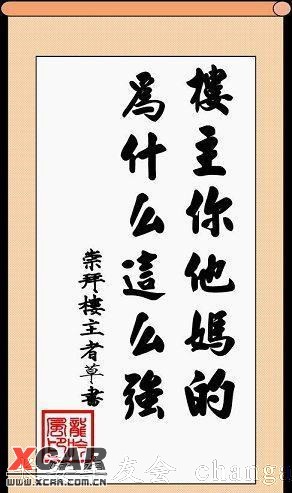 樓主你他媽的
為什么這么強
崇拜樓主者草書
XCAR
WWW.XCAR.COM.CN
友会 chang